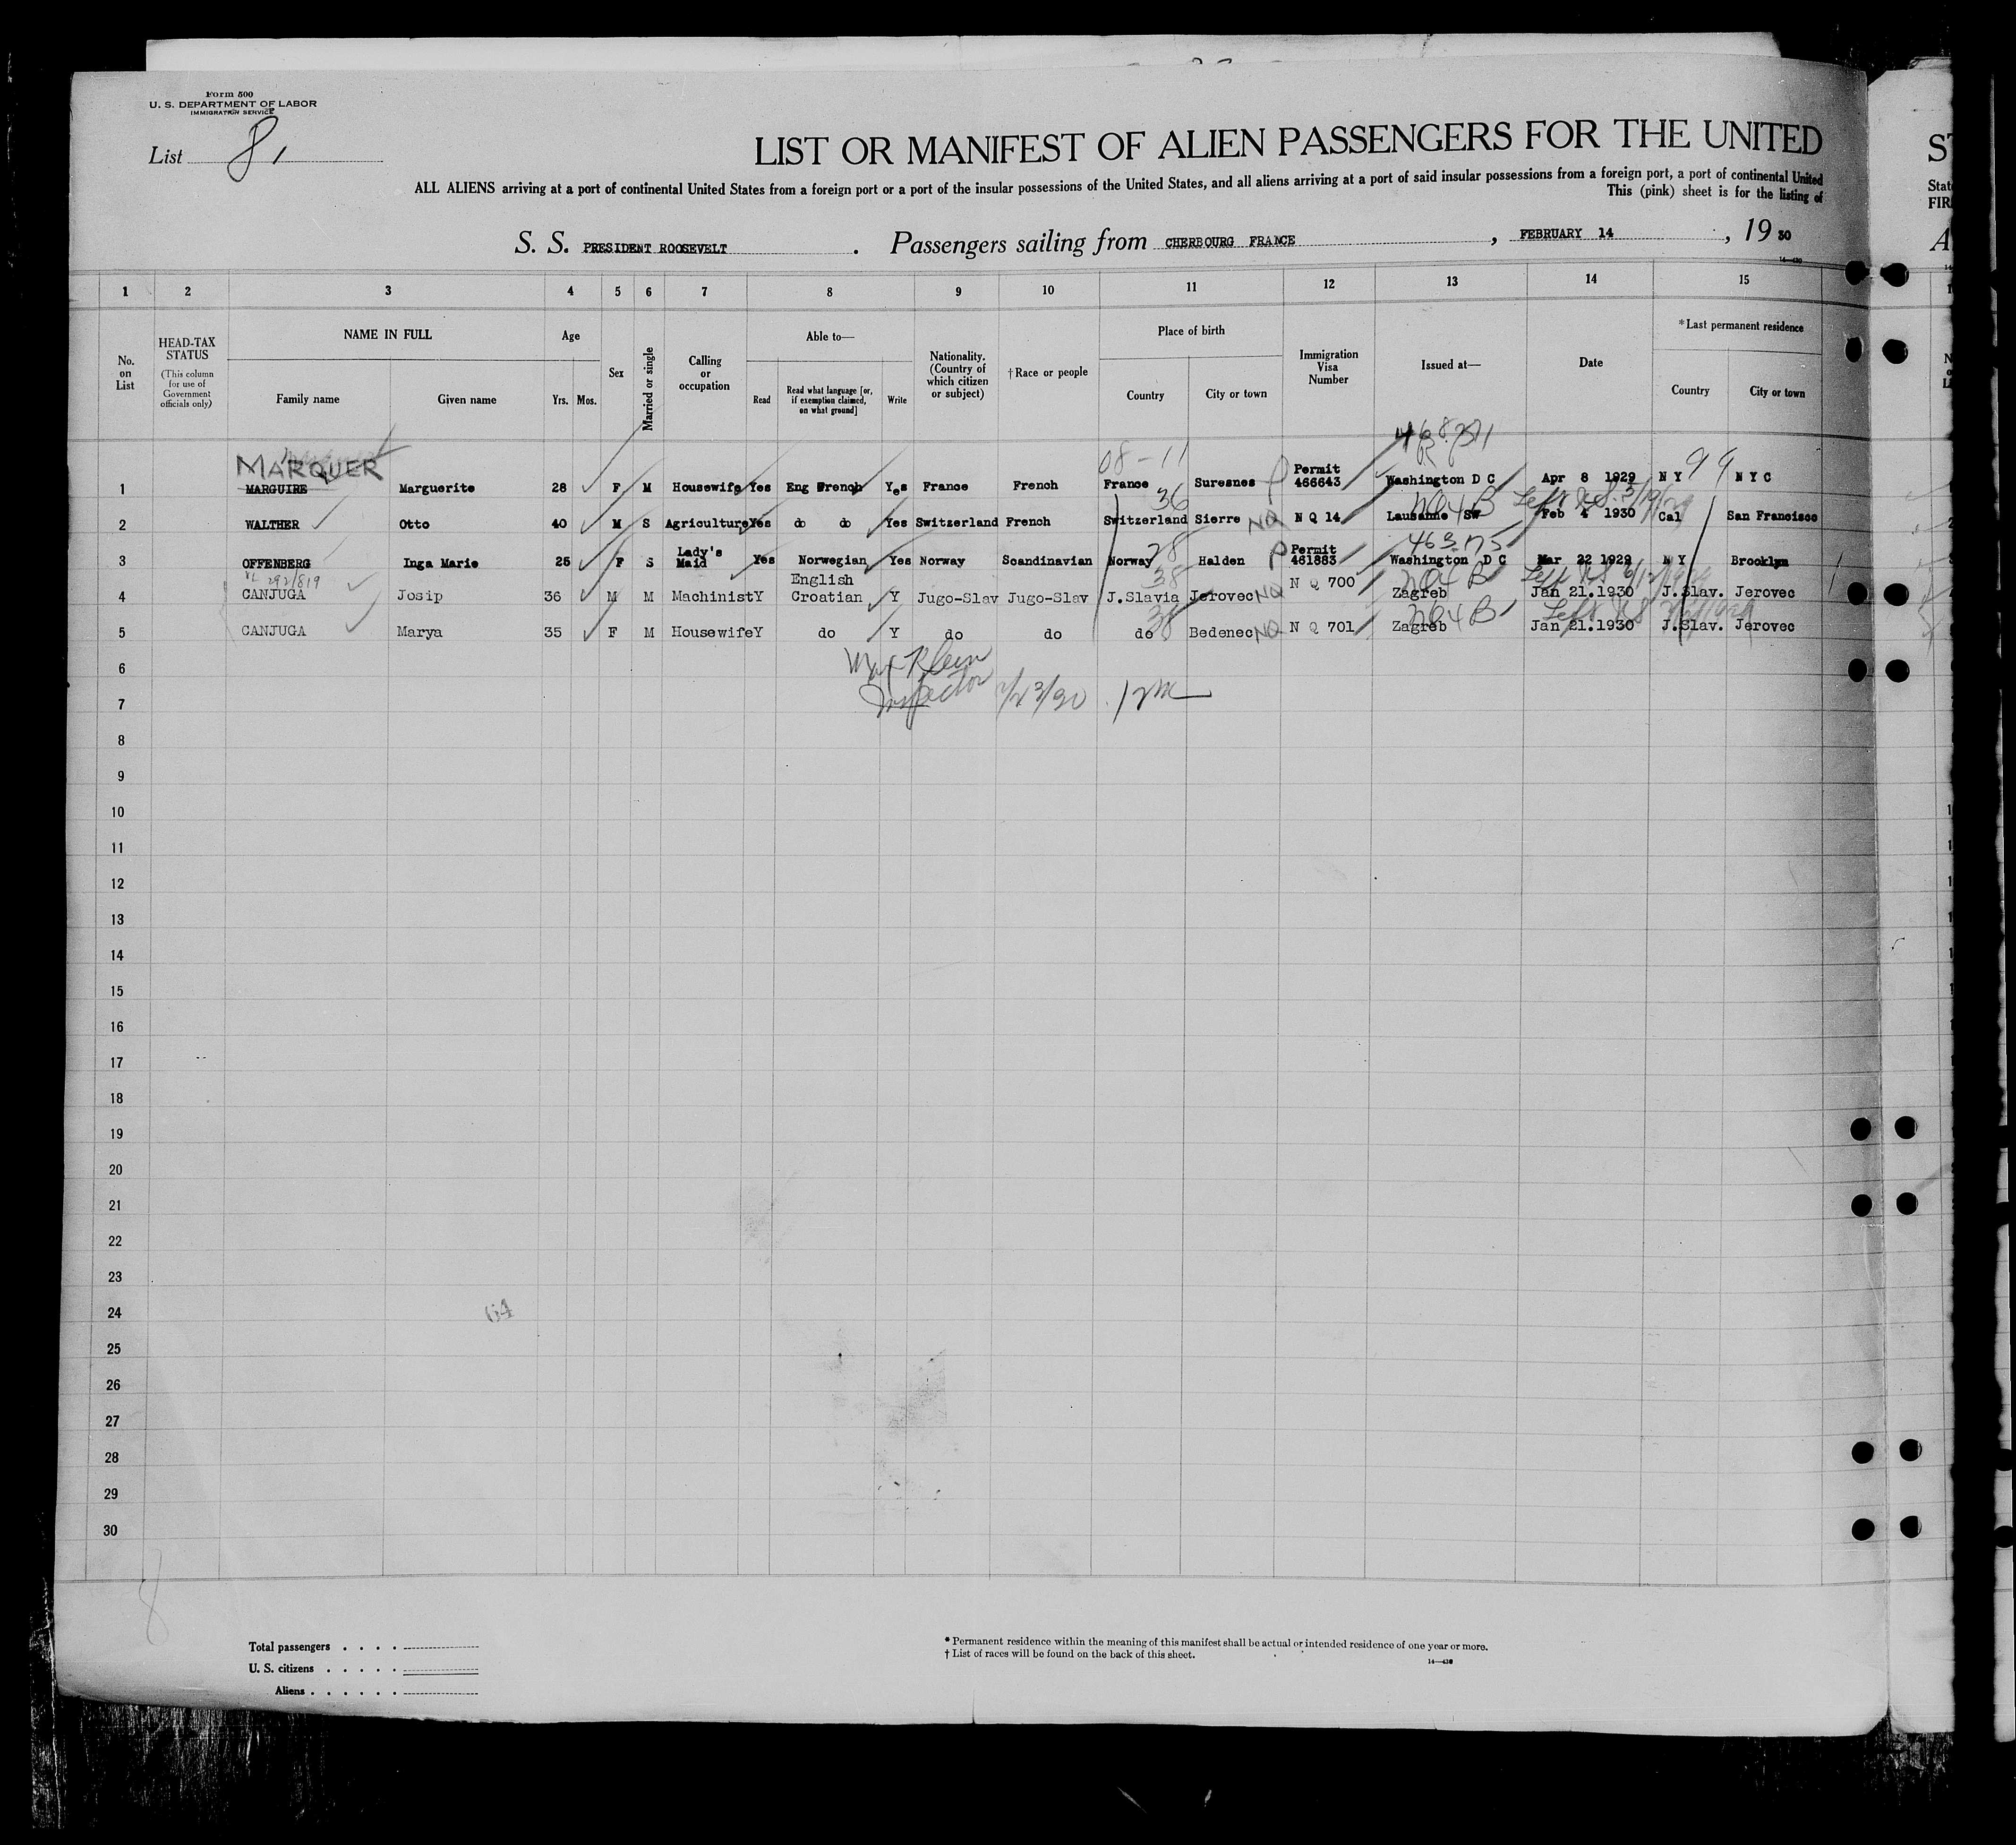 Form 500
U. S. DEPARTMENT OF LABOR
IMMIGRATION SERVICE
List 8,
LIST OR MANIFEST OF ALIEN PASSENGERS FOR THE UNITED
ALL ALIENS arriving at a port of continental United States from a foreign port or a port of the insular possessions of the United States, and all aliens arriving at a port of said insular possessions from a foreign port, a port of continental United
This (pink) sheet is for the listing of
S. S. PRESIDENT ROOSEVELT . Passengers sailing from CHERBOURG FRANCE , FEBRUARY 14 , 19 30
1 2 3 4 5 6 7 8 9 10 11 12 13 14 15
No. on List
HEAD-TAX STATUS (This column for use of Government officials only)
NAME IN FULL Family name Given name
Age Yrs. Mos.
Sex
Married or single
Calling or occupation
Able to— Read Read what language [or, if exemption claimed, on what ground] Write
Nationality. (Country of which citizen or subject)
†Race or people
Place of birth Country City or town
Immigration Visa Number
Issued at—
Date
*Last permanent residence Country City or town
MARQUER 08-11 99
1 MARGUIRE Marguerite 28 F M Housewife Yes Eng French Yes France French France Suresnes P Permit 466643 Washington D C Apr 8 1929 N Y N Y C
36 NO4B
2 WALTHER Otto 40 M S Agriculture Yes do do Yes Switzerland French Switzerland Sierre NQ N Q 14 Lausanne SW Feb 4 1930 Cal San Francisco
28 463175
3 OFFENBERG Inga Marie 25 F S Lady's Maid Yes Norwegian Yes Norway Scandinavian Norway Halden P Permit 461883 Washington D C Mar 22 1929 N Y Brooklyn
292/819 38 NO4B
4 CANJUGA Josip 36 M M Machinist Y English Croatian Y Jugo-Slav Jugo-Slav J.Slavia Jerovec NQ N Q 700 Zagreb Jan 21.1930 J.Slav. Jerovec
38 NO4B
5 CANJUGA Marya 35 F M Housewife Y do Y do do do Bedenec NQ N Q 701 Zagreb Jan 21.1930 J.Slav. Jerovec
6 Max Klein
7 Inspector 2/23/30
8
9
10
11
12
13
14
15
16
17
18
19
20
21
22
23
24
25
26
27
28
29
30
8
Total passengers . . . .
U. S. citizens . . . . .
Aliens . . . . . .
* Permanent residence within the meaning of this manifest shall be actual or intended residence of one year or more.
† List of races will be found on the back of this sheet.
14—430